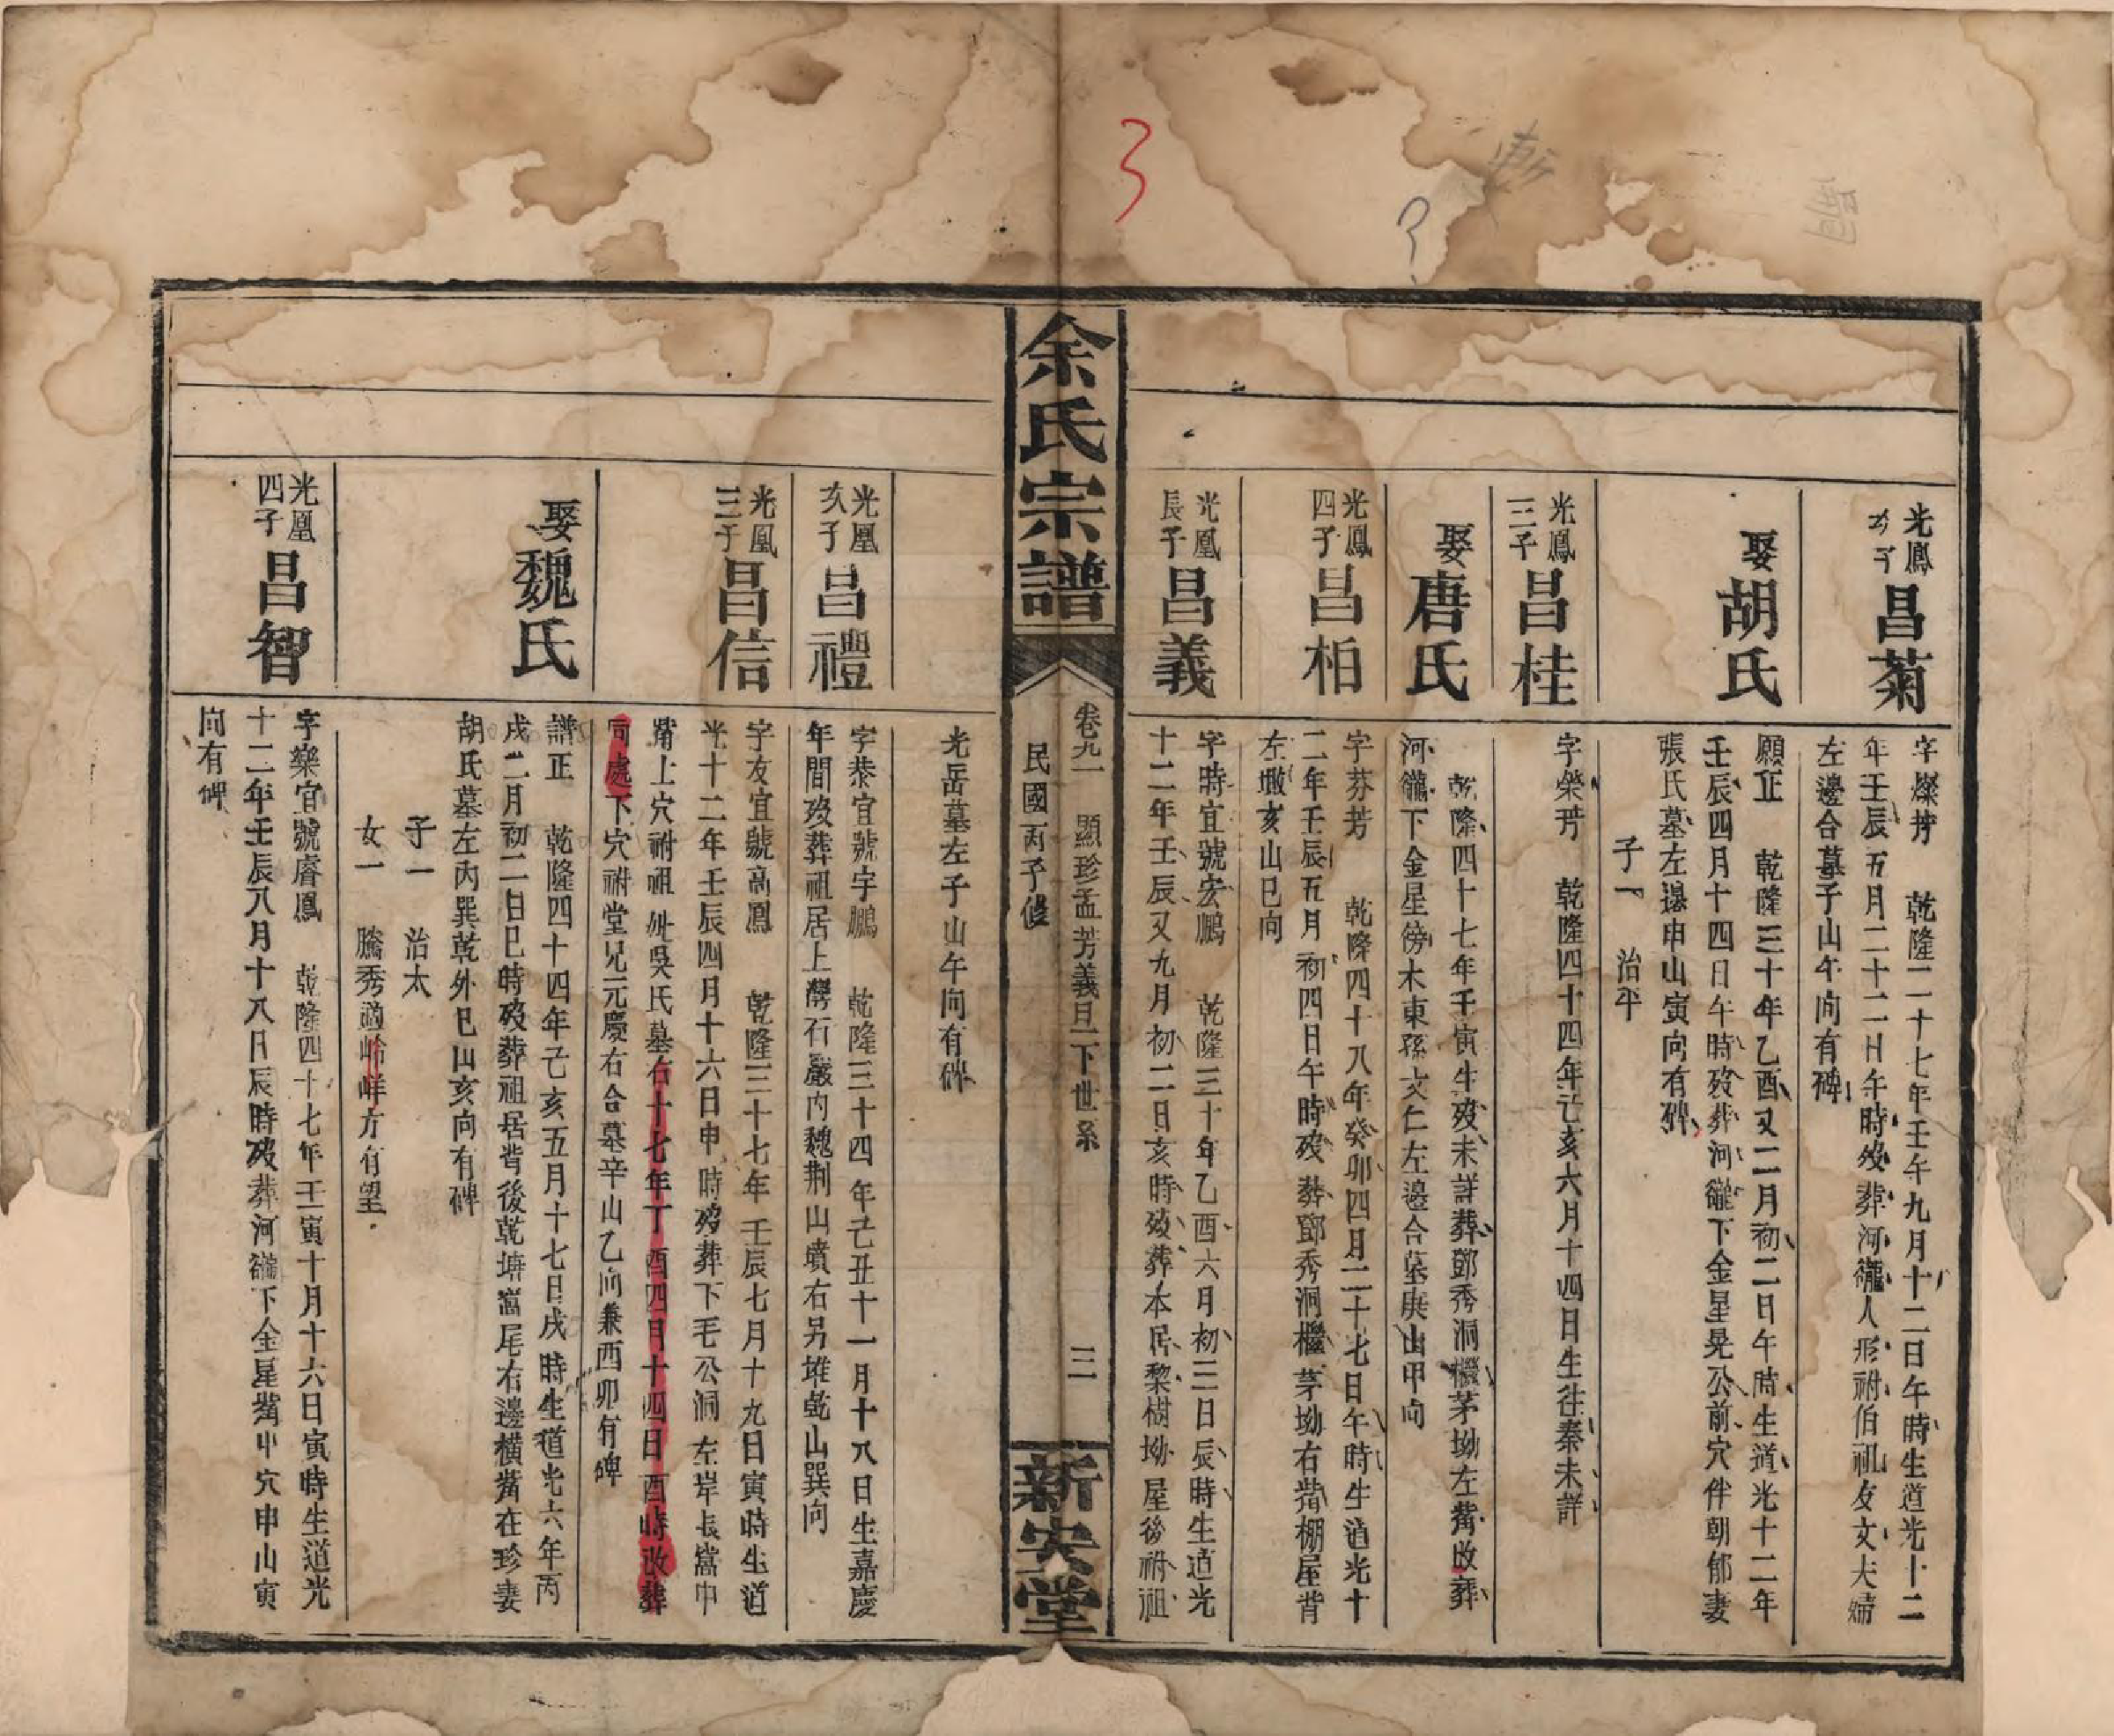 光鳳
次子
昌菊
字燦芳 乾隆二十七年壬午九月十二日午時生道光十二
年壬辰五月二十二日午時歿葬河龍人形祔伯祖友文夫婦
左邊合墓子山午向有碑
娶胡氏
願正 乾隆三十年乙酉又二月初二日午時生道光十二年
壬辰四月十四日午時歿葬河龍下金星晃公前穴伴朝郁妻
張氏墓左邊申山寅向有碑
子一 治平
光鳳
三子
昌桂
字榮芳 乾隆四十四年己亥六月十四日生往秦未詳
娶唐氏
乾隆四十七年壬寅生歿未詳葬鄧秀洞櫃茅坳左觜改葬
河龍下金星傍木東孫文仁左邊合墓庚山甲向
光鳳
四子
昌柏
字芬芳 乾隆四十八年癸卯四月二十七日午時生道光十
二年壬辰五月初四日午時歿葬鄧秀洞櫃茅坳右觜棚屋背
左墩亥山巳向
光凰
長子
昌義
字時宜號宏鵬 乾隆三十年乙酉六月初三日辰時生道光
十二年壬辰又九月初二日亥時歿葬本居黎樹坳屋後祔祖
余氏宗譜
卷九一 顯珍孟芳義旦下世系
民國丙子修
三
新安堂
光岳墓左子山午向有碑
光凰
次子
昌禮
字恭宜號宇鵬 乾隆三十四年己丑十一月十八日生嘉慶
年間歿葬祖居上灣石嚴內魏荆山墳右另堆乾山巽向
光凰
三子
昌信
字友宜號高鳳 乾隆三十七年壬辰七月十九日寅時生道
光十二年壬辰四月十六日申時歿葬下毛公洞左岸長嵩中
觜上穴祔祖妣吳氏墓右十七年丁酉四月十四日酉時改葬
同處下穴祔堂兄元慶右合墓辛山乙向兼酉卯有碑
娶魏氏
譜正 乾隆四十四年己亥五月十七日戌時生道光六年丙
戌二月初二日巳時歿葬祖居背後乾塘嵩尾右邊橫觜在珍妻
胡氏墓左丙巽乾外巳山亥向有碑
子一 治太
女一 騰秀適峪峰方有望
光凰
四子
昌智
字樂宜號睿鳳 乾隆四十七年壬寅十月十六日寅時生道光
十二年壬辰八月十八日辰時歿葬河龍下金星觜中穴申山寅
向有碑
3